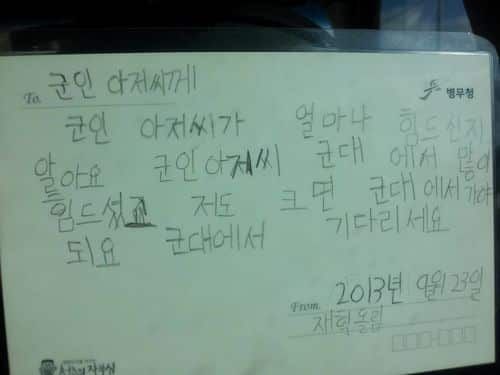 To. 군인 아저씨께
병무청
군인 아저씨가 얼마나 힘드신지
알아요 군인아저씨 군대에서 많이
힘드셨죠 저도 크면 군대에서 가야
되요 군대에서 기다리세요
2013년 9월 23일
From. 재혁올림